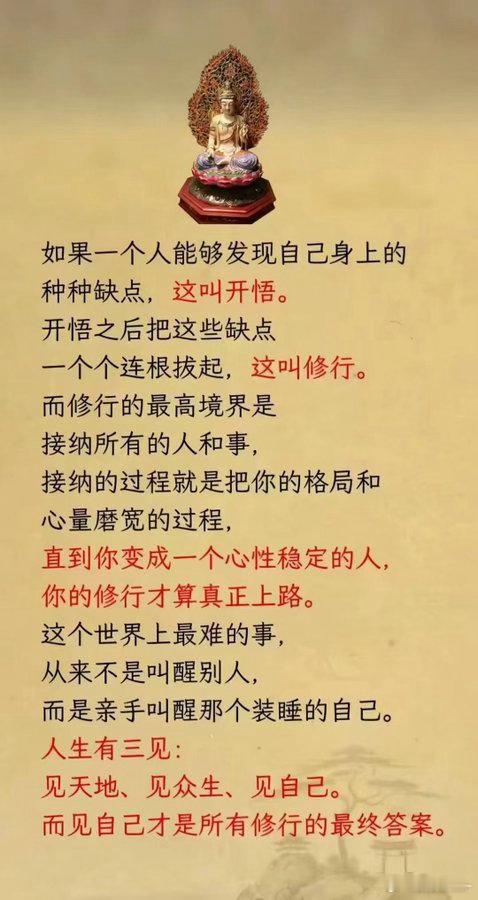 如果一个人能够发现自己身上的
种种缺点，这叫开悟。
开悟之后把这些缺点
一个个连根拔起，这叫修行。
而修行的最高境界是
接纳所有的人和事，
接纳的过程就是把你的格局和
心量磨宽的过程，
直到你变成一个心性稳定的人，
你的修行才算真正上路。
这个世界上最难的事，
从来不是叫醒别人，
而是亲手叫醒那个装睡的自己。
人生有三见：
见天地、见众生、见自己。
而见自己才是所有修行的最终答案。